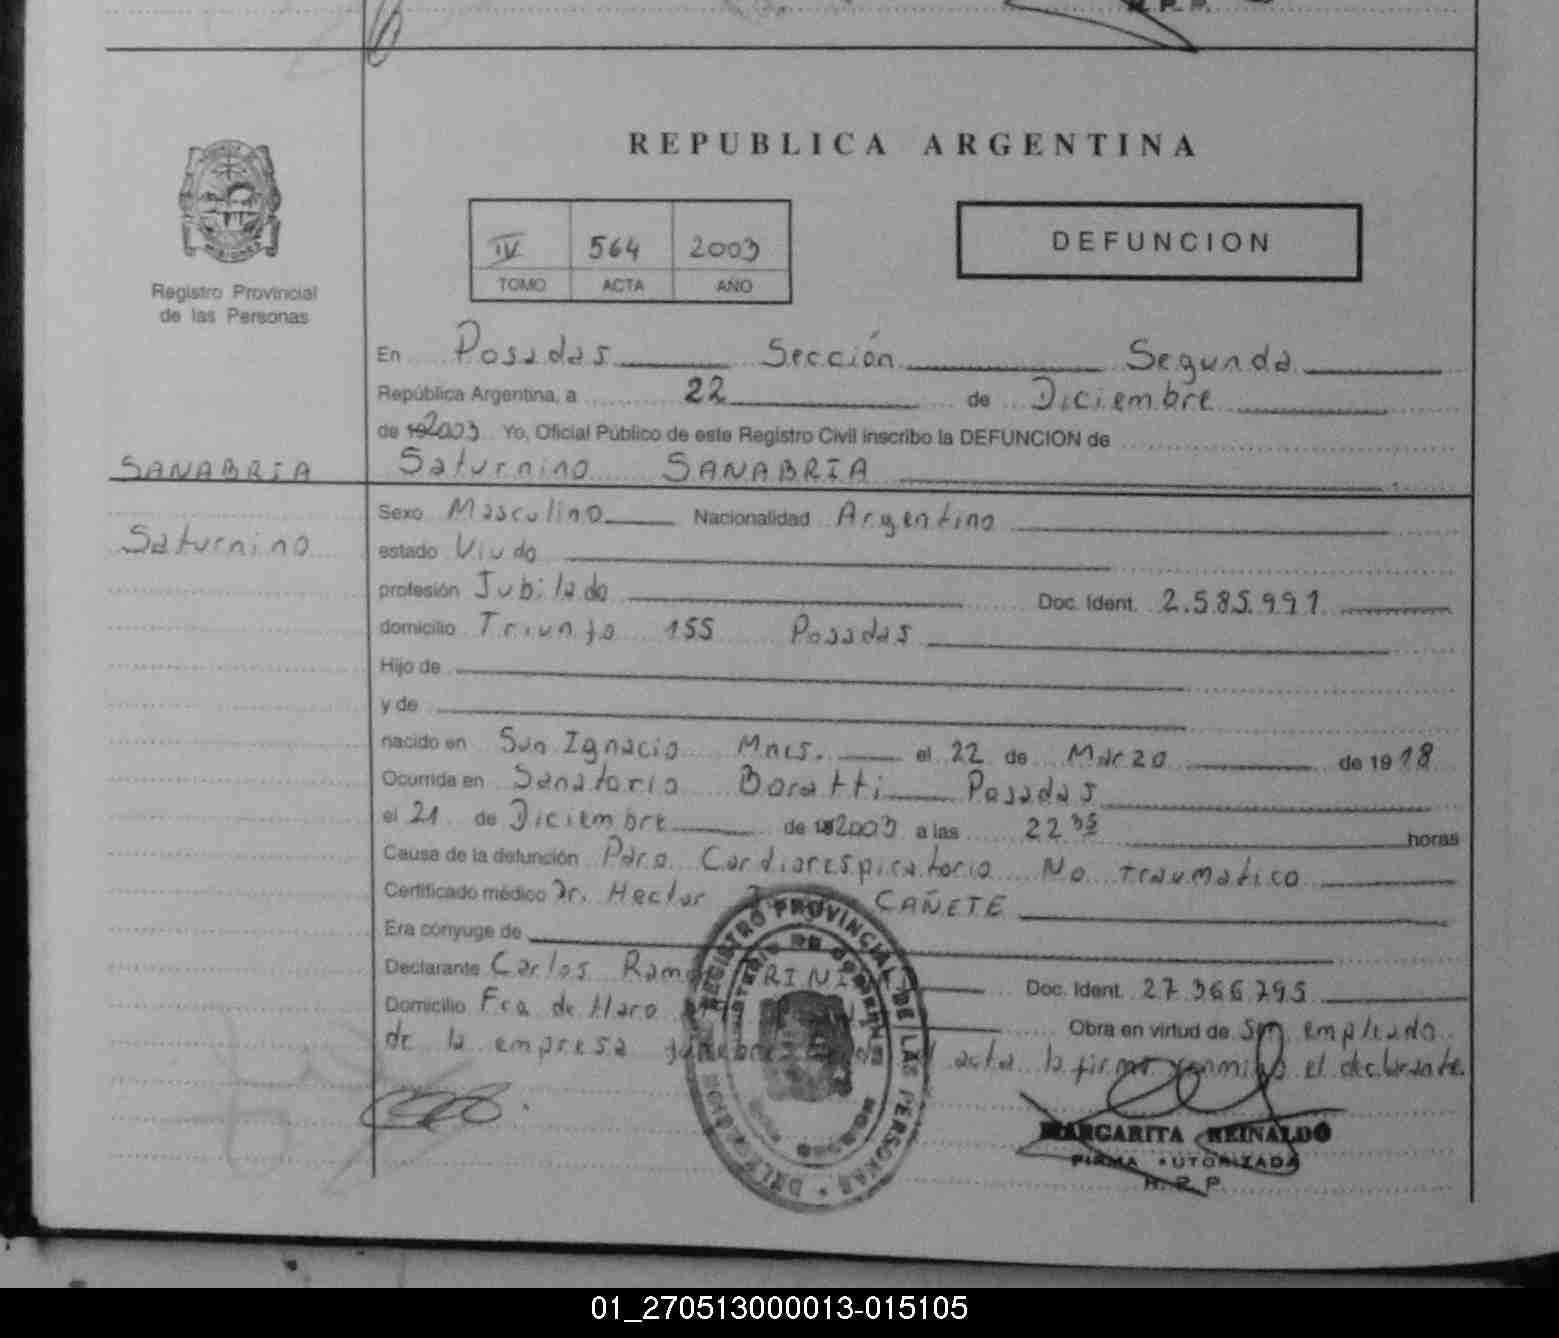 REPUBLICA ARGENTINA
Registro Provincial
de las Personas
IV 564 2003
TOMO ACTA AÑO
DEFUNCION
En Posadas Sección Segunda
República Argentina, a 22 de Diciembre
de 192003 Yo, Oficial Público de este Registro Civil inscribo la DEFUNCION de
SANABRIA
Saturnino SANABRIA
Saturnino
Sexo Masculino Nacionalidad Argentino
estado Viudo
profesión Jubilado Doc. Ident. 2.585.991
domicilio Triunfo 155 Posadas
Hijo de
y de
nacido en San Ignacio Mnes. el 22 de Marzo de 1918
Ocurrida en Sanatorio Boratti Posadas
el 21 de Diciembre de 2003 a las 22 35 horas
Causa de la defunción Paro Cardiorespiratorio No traumatico
Certificado médico Dr. Hector CAÑETE
Era cónyuge de
Declarante Carlos Doc. Ident. 27.366.795
Domicilio Fca. de Haro Obra en virtud de ser empleado
de la empresa acta la firma conmigo el declarante.
REGISTRO PROVINCIAL DE LAS PERSONAS
MARGARITA REINALDO
FIRMA AUTORIZADA
R. P. P.
01_270513000013-015105